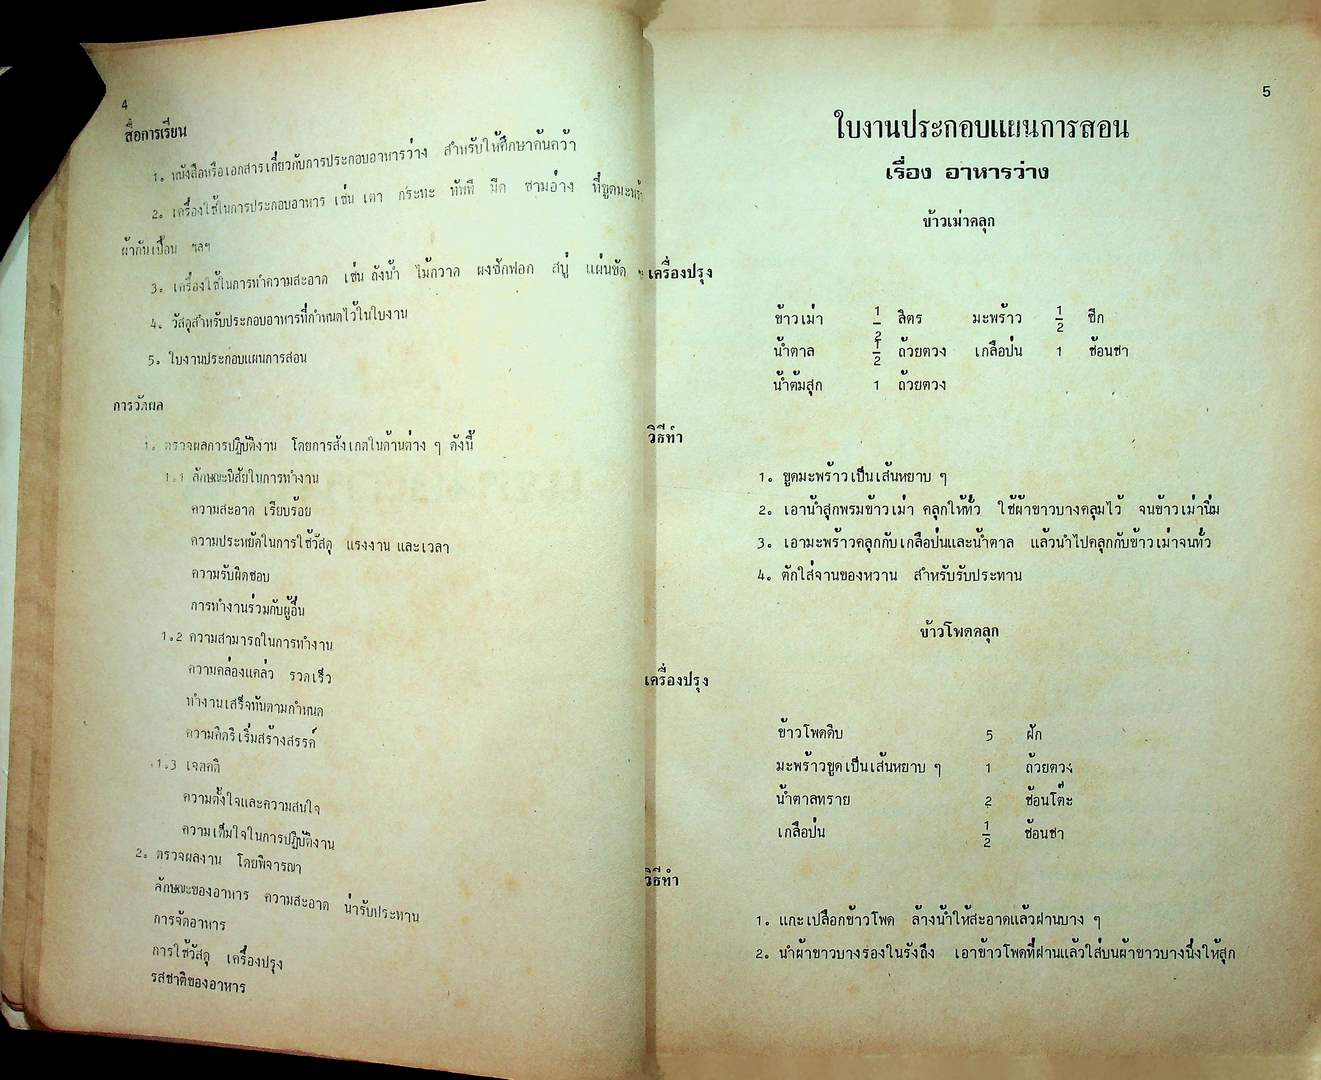 4
สื่อการเรียน
1. หนังสือหรือเอกสารเกี่ยวกับการประกอบอาหารว่าง สำหรับให้ศึกษาค้นคว้า
2. เครื่องใช้ในการประกอบอาหาร เช่น เตา กระทะ ทัพพี มีด ชามอ่าง ที่ขูดมะพร้าว
ผ้ากันเปื้อน ฯลฯ
3. เครื่องใช้ในการทำความสะอาด เช่น ถังน้ำ ไม้กวาด ผงซักฟอก สบู่ แผ่นขัด
4. วัสดุสำหรับประกอบอาหารที่กำหนดไว้ในใบงาน
5. ใบงานประกอบแผนการสอน
การวัดผล
1. ตรวจผลการปฏิบัติงาน โดยการสังเกตในด้านต่าง ๆ ดังนี้
1.1 ลักษณะนิสัยในการทำงาน
ความสะอาด เรียบร้อย
ความประหยัดในการใช้วัสดุ แรงงาน และเวลา
ความรับผิดชอบ
การทำงานร่วมกับผู้อื่น
1.2 ความสามารถในการทำงาน
ความคล่องแคล่ว รวดเร็ว
ทำงานเสร็จทันตามกำหนด
ความคิดริเริ่มสร้างสรรค์
1.3 เจตคติ
ความตั้งใจและความสนใจ
ความเต็มใจในการปฏิบัติงาน
2. ตรวจผลงาน โดยพิจารณา
ลักษณะของอาหาร ความสะอาด น่ารับประทาน
การจัดอาหาร
การใช้วัสดุ เครื่องปรุง
รสชาติของอาหาร
5
ใบงานประกอบแผนการสอน
เรื่อง อาหารว่าง
ข้าวเม่าคลุก
เครื่องปรุง
ข้าวเม่า 1/2 ลิตร มะพร้าว 1/2 ซีก
น้ำตาล 1/2 ถ้วยตวง เกลือป่น 1 ช้อนชา
น้ำต้มสุก 1 ถ้วยตวง
วิธีทำ
1. ขูดมะพร้าวเป็นเส้นหยาบ ๆ
2. เอาน้ำสุกพรมข้าวเม่า คลุกให้ทั่ว ใช้ผ้าขาวบางคลุมไว้ จนข้าวเม่านิ่ม
3. เอามะพร้าวคลุกกับเกลือป่นและน้ำตาล แล้วนำไปคลุกกับข้าวเม่าจนทั่ว
4. ตักใส่จานของหวาน สำหรับรับประทาน
ข้าวโพดคลุก
เครื่องปรุง
ข้าวโพดดิบ 5 ฝัก
มะพร้าวขูดเป็นเส้นหยาบ ๆ 1 ถ้วยตวง
น้ำตาลทราย 2 ช้อนโต๊ะ
เกลือป่น 1/2 ช้อนชา
วิธีทำ
1. แกะเปลือกข้าวโพด ล้างน้ำให้สะอาดแล้วฝานบาง ๆ
2. นำผ้าขาวบางรองในรังถึง เอาข้าวโพดที่ฝานแล้วใส่บนผ้าขาวบางนึ่งให้สุก